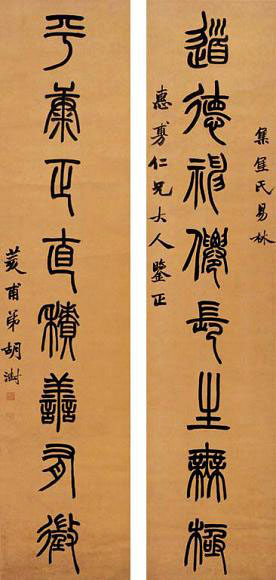 集焦氏易林
道德神僊長生無極
惠仁兄大人鑒正
平康正直積善有徵
荄甫弟胡澍